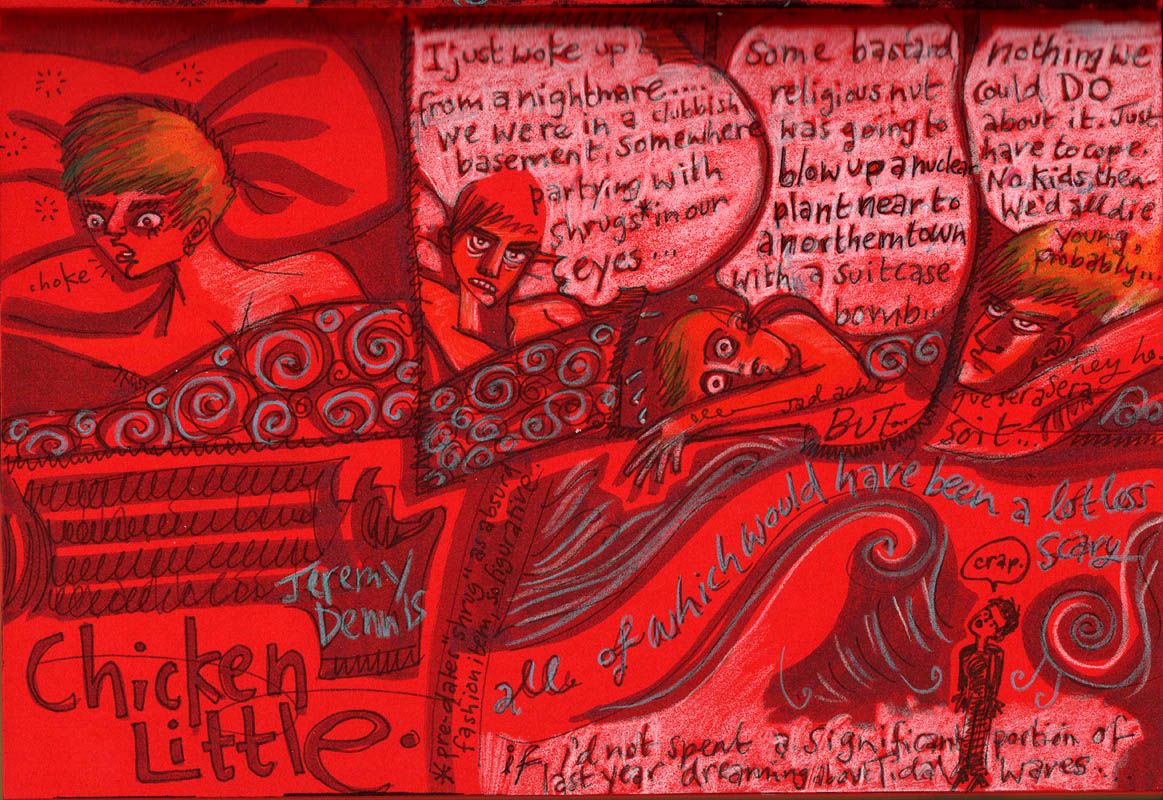 choke
I just woke up
from a nightmare....
we were in a clubbish
basement, somewhere
partying with
shrugs* in our
eyes...
Some bastard
religious nut
was going to
blow up a nuclear
plant near to
a northern town
with a suitcase
bomb...
sad ache
BUT...
nothing we
could DO
about it. Just
have to cope.
No kids, then.
We'd all die
young,
probably...
hey ho.
que sera sera
so it...
Jeremy
Dennis
Chicken
Little.
*pre-dates "shrug" as absurd
fashion item, so figurative.
all of which would have been a lot less
scary
crap.
if i'd not spent a significant portion of
last year dreaming about Tidal waves...